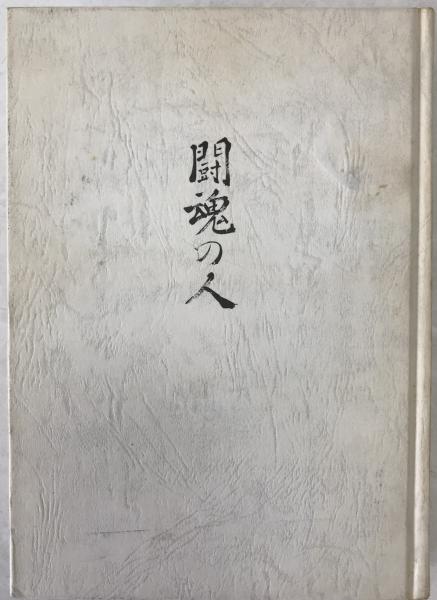 闘魂の人